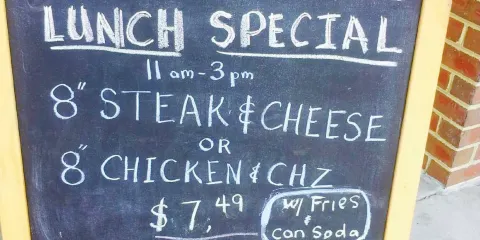 LUNCH SPECIAL
11 am-3pm
8" STEAK & CHEESE
OR
8" CHICKEN & CHZ
$7,49
w/ Fries
&
Can Soda